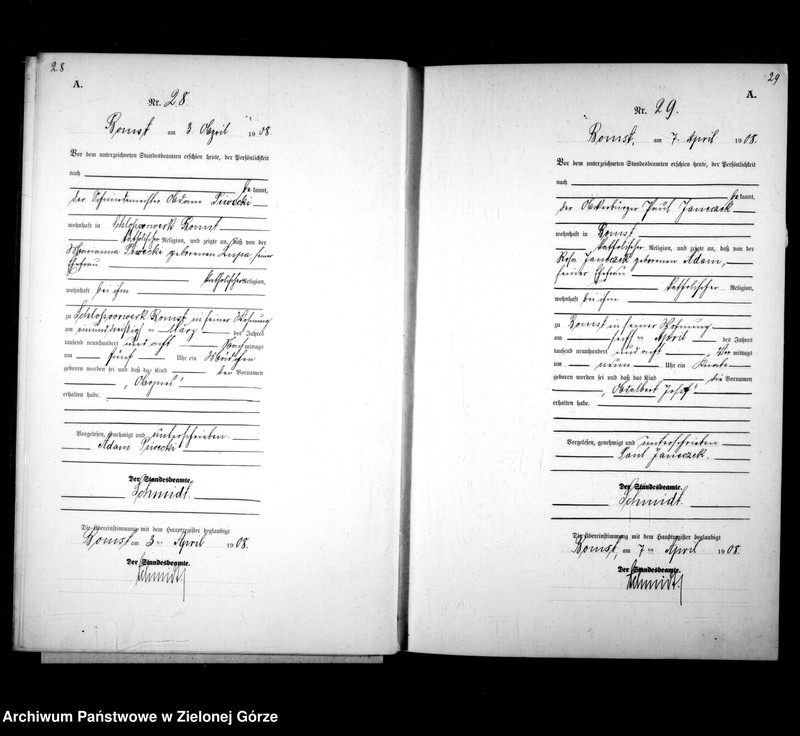 28
A.
Nr. 28
Bomst am 3. April 1908.
Vor dem unterzeichneten Standesbeamten erschien heute, der Persönlichkeit
nach
be kannt,
der Schmiedemeister Adam Piwecki
wohnhaft in Schloßvorwerk Bomst
katholischer Religion, und zeigte an, daß von der
Marianna Piwecki geborenen Lupa, seiner
Ehefrau
katholischer Religion,
wohnhaft bei ihm
zu Schloßvorwerk Bomst, in seiner Wohnung
am einunddreißig ten März des Jahres
tausend neunhundert und acht Nach mittags
um fünf Uhr ein Mädchen
geboren worden sei und daß das Kind den Vornamen
erhalten habe.
Vorgelesen, genehmigt und unterschrieben.
Adam Piwecki
Der Standesbeamte.
Schmidt.
Die Übereinstimmung mit dem Hauptregister beglaubigt
Bomst am 3 ten April 1908.
Der Standesbeamte.
Schmidt
29
A.
Nr. 29.
Bomst, am 7. April 1908.
Vor dem unterzeichneten Standesbeamten erschien heute, der Persönlichkeit
nach
be kannt,
der Ackerbürger Paul Janeczek
wohnhaft in Bomst
katholischer Religion, und zeigte an, daß von der
Rosa Janeczek geborenen Adam,
seiner Ehefrau
katholischer Religion,
wohnhaft bei ihm
zu Bomst in seiner Wohnung
am sechs ten April des Jahres
tausend neunhundert und acht, Vor mittags
um neun Uhr ein Knabe
geboren worden sei und daß das Kind die Vornamen
„Adalbert Josef“
erhalten habe.
Vorgelesen, genehmigt und unterschrieben
Paul Janeczek.
Der Standesbeamte.
Schmidt.
Die Übereinstimmung mit dem Hauptregister beglaubigt
Bomst, am 7 ten April 1908.
Der Standesbeamte.
Schmidt.
Archiwum Państwowe w Zielonej Górze